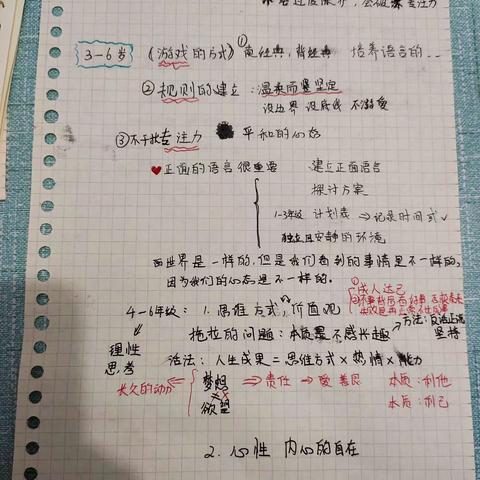 3-6岁 《游戏的方式》 ① 读经典，背经典 培养语言的...
② 规则的建立：温柔而坚定
没边界 没底线 不溺爱
③ 不干扰专注力 平和的心态
❤正面的语言很重要 建立正面语言
探讨方案
1-3年级 计划表 → 记录时间式 ✓
独立且安静的环境
世界是一样的，但是我们看到的事情是不一样的，
因为我们的心态是不一样的。
① 成人达己
4-6年级：1. 思维方式，价值观
理性思考
拖拉的问题：本质是不感兴趣
方法：
坚持
活法：人生成果 = 思维方式 × 热情 × 能力
长久的动力 ⇐ 梦想 ⇒ 责任 → 爱 善良 本质：利他
欲望 本质：利己
2. 心性 内心的自在